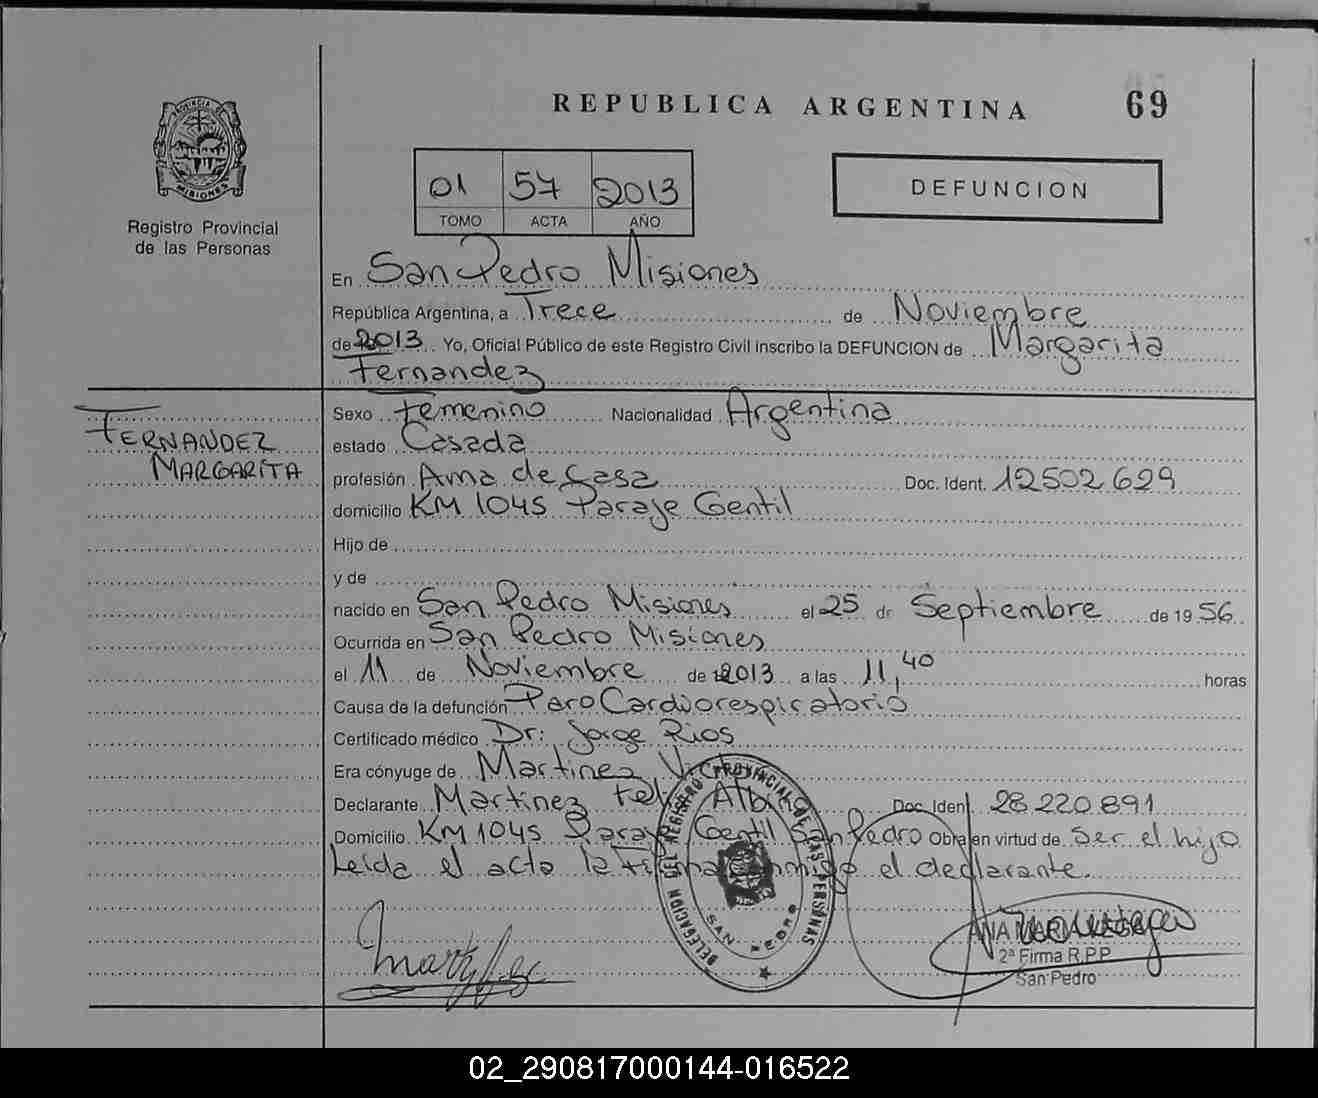 REPUBLICA ARGENTINA 69
01 57 2013
TOMO ACTA AÑO
DEFUNCION
PROVINCIA DE
MISIONES
Registro Provincial
de las Personas
En San Pedro Misiones
República Argentina, a Trece de Noviembre
de 2013 Yo, Oficial Público de este Registro Civil inscribo la DEFUNCION de Margarita
Fernandez
FERNANDEZ
MARGARITA
Sexo Femenino Nacionalidad Argentina
estado Casada
profesión Ama de Casa Doc. Ident. 12502629
domicilio KM 1045 Paraje Gentil
Hijo de
y de
nacido en San Pedro Misiones el 25 de Septiembre de 1956
Ocurrida en San Pedro Misiones
el 11 de Noviembre de 2013 a las 11,40 horas
Causa de la defunción Paro Cardiorespiratorio
Certificado médico Dr: Jorge Rios
Era cónyuge de Martinez
Declarante Martinez Doc. Ident 28220891
Domicilio KM 1045 Paraje Gentil San Pedro Obra en virtud de Ser el hijo
Leida el acta la Firma conmigo el declarante.
DELEGACION DEL REGISTRO PROVINCIAL DE LAS PERSONAS
SAN PEDRO
ANA MARIA
2ª Firma R.P.P
San Pedro
02_290817000144-016522